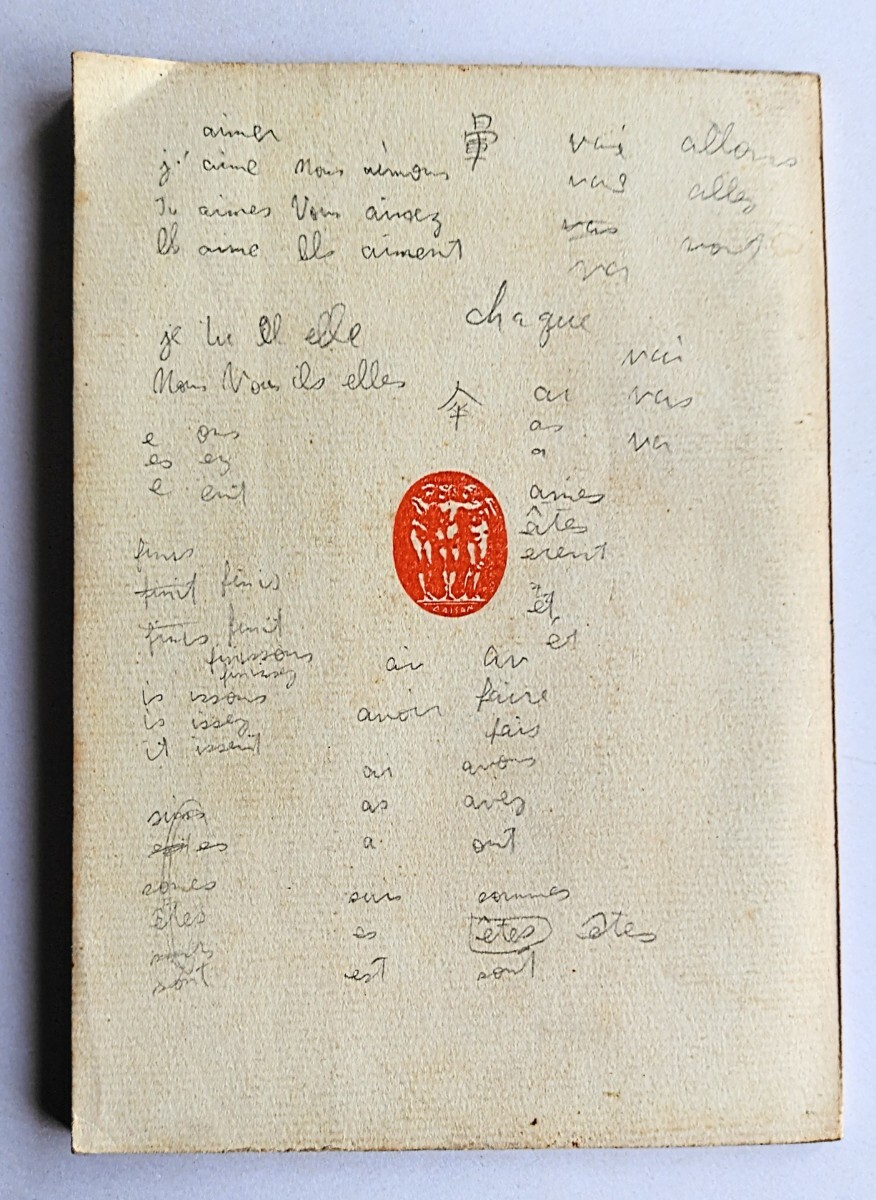 aimer
j'aime nous aimons
Tu aimes Vous aimez
Il aime Ils aiment
暈
vais allons
vais allez
vas vont
va
je tu il elle
Nous Vous ils elles
chaque
傘
e ons
es ez
e ent
ai
as
a
vais
vas
va
ames
âtes
èrent
et
et
finis
finit finis
finis finit
finissons
finissez
is issons
is issez
it issent
ai au
avoir faire
fais
ai avons
as avez
a ont
suis sommes
es êtes êtes
est sont
êtes
sont